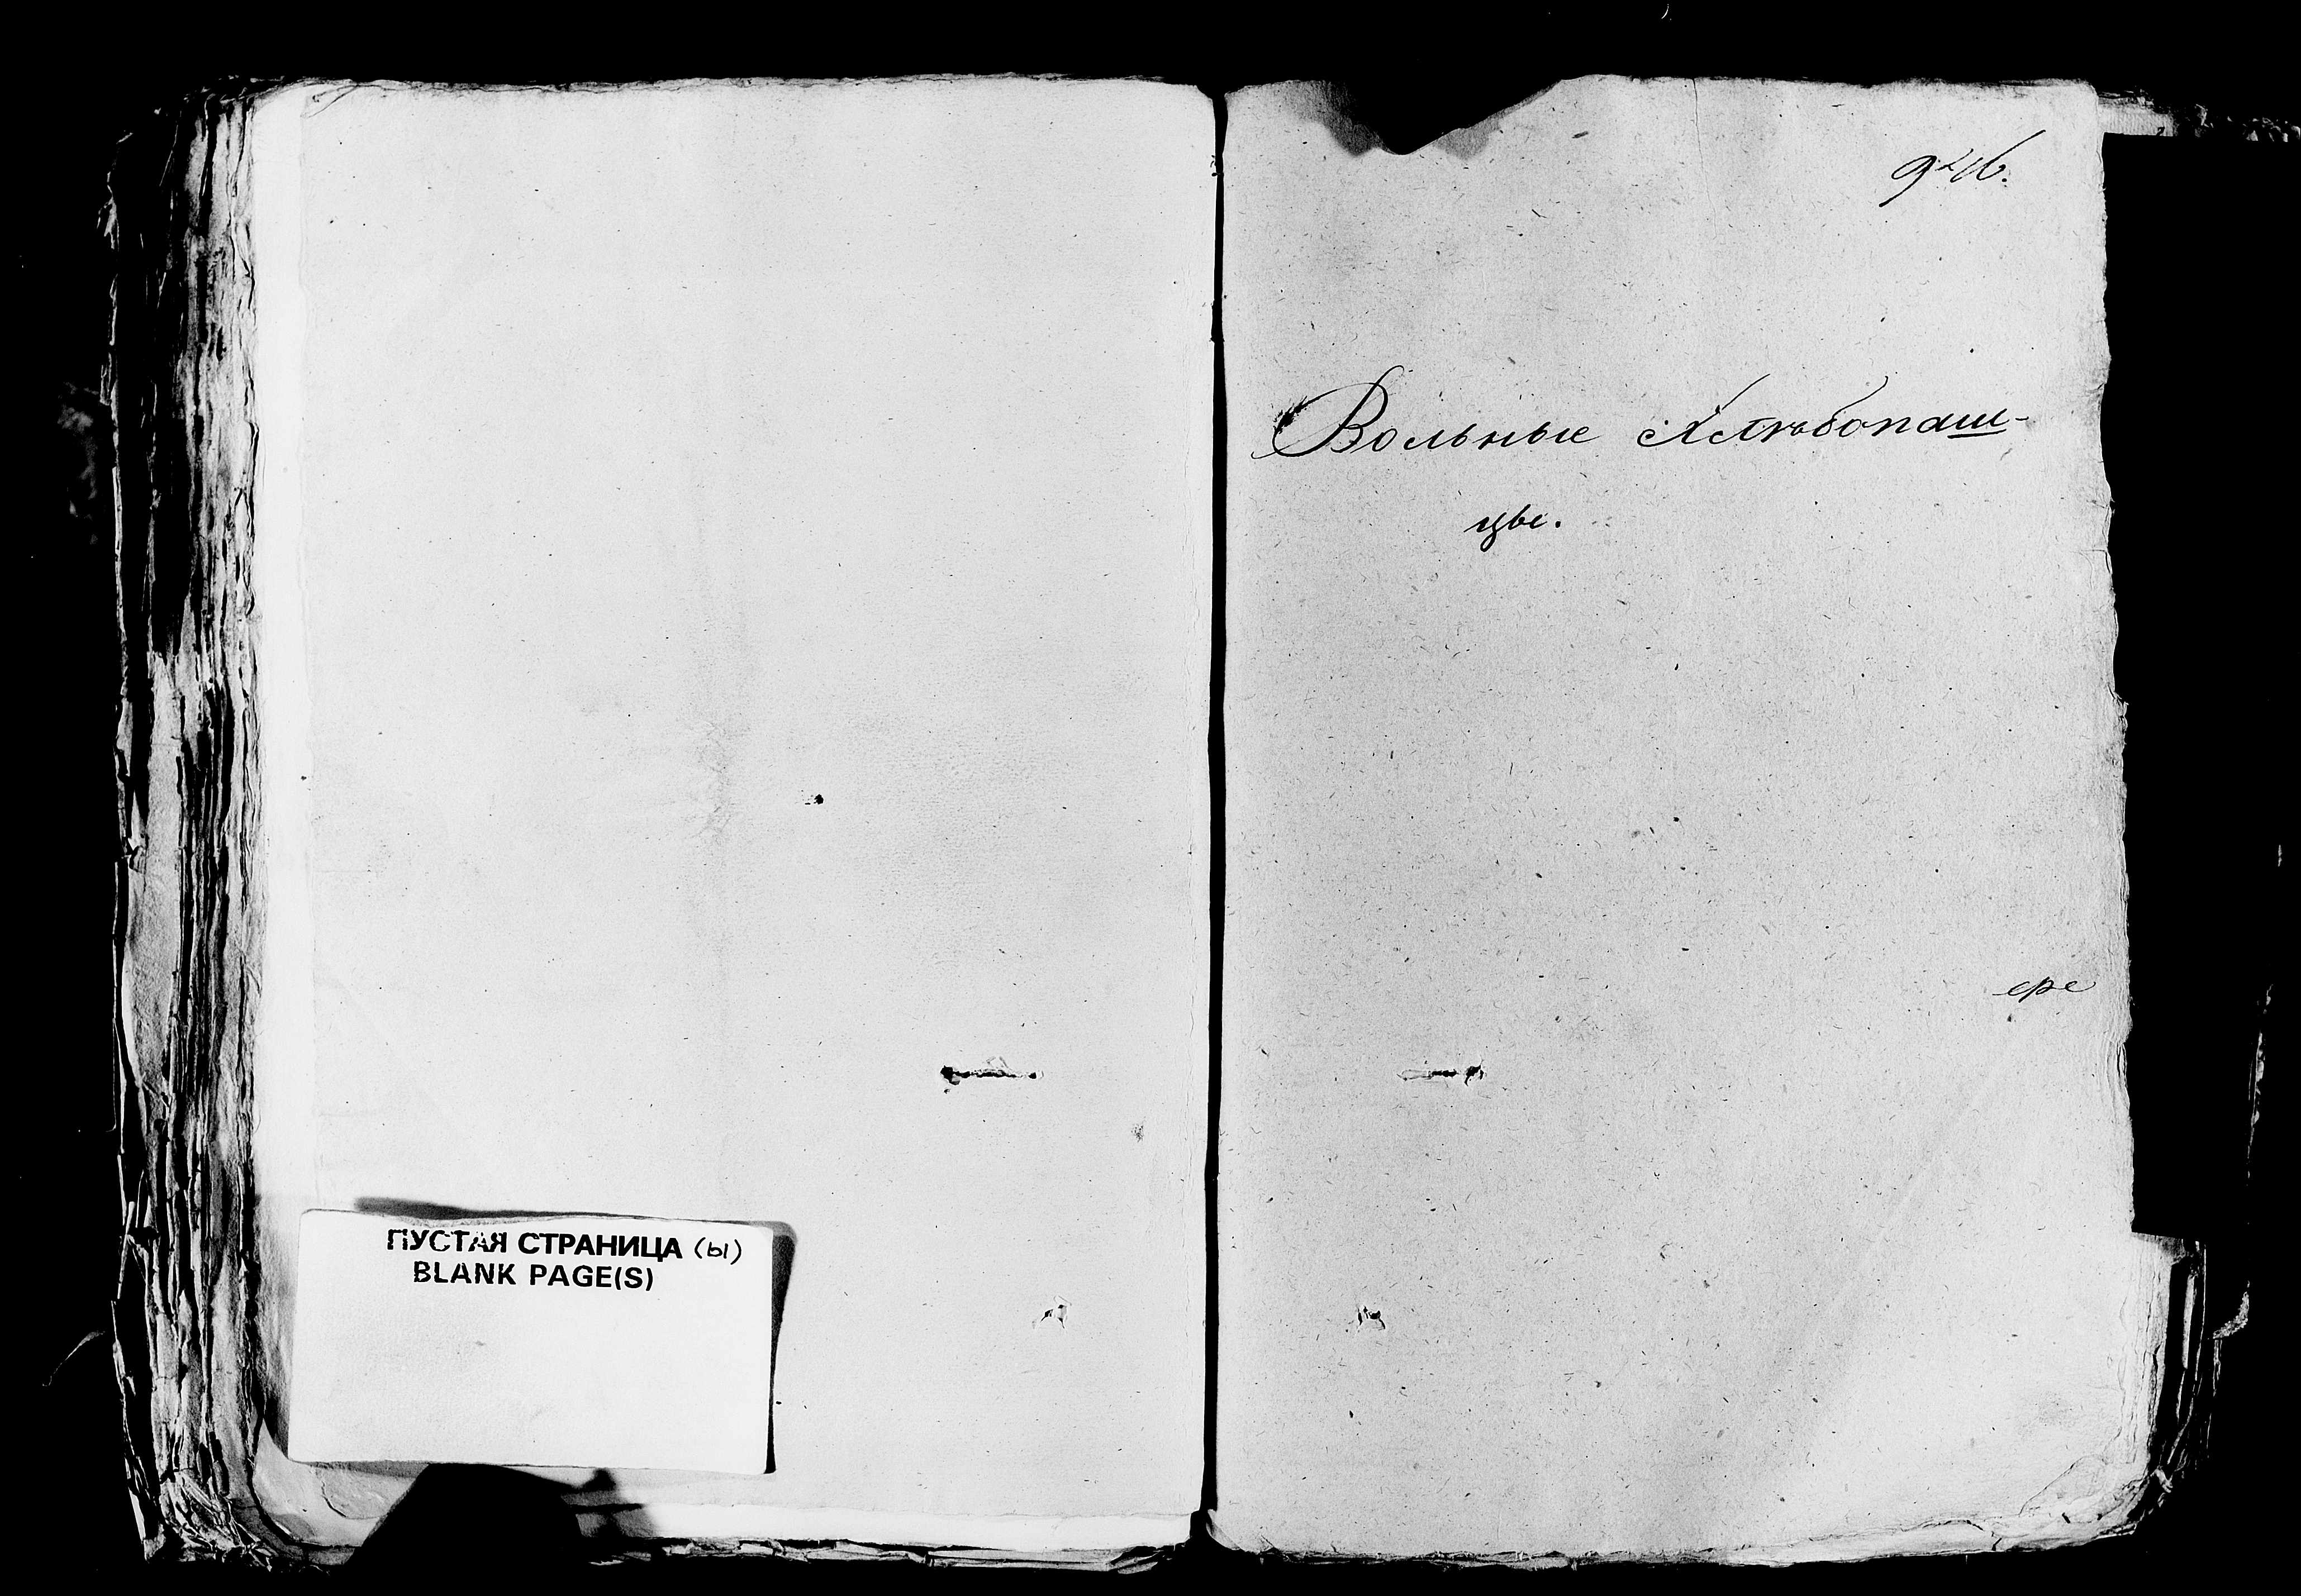 ПУСТАЯ СТРАНИЦА (Ы)
BLANK PAGE(S)
Вольные Хлѣбопаш-
цы.